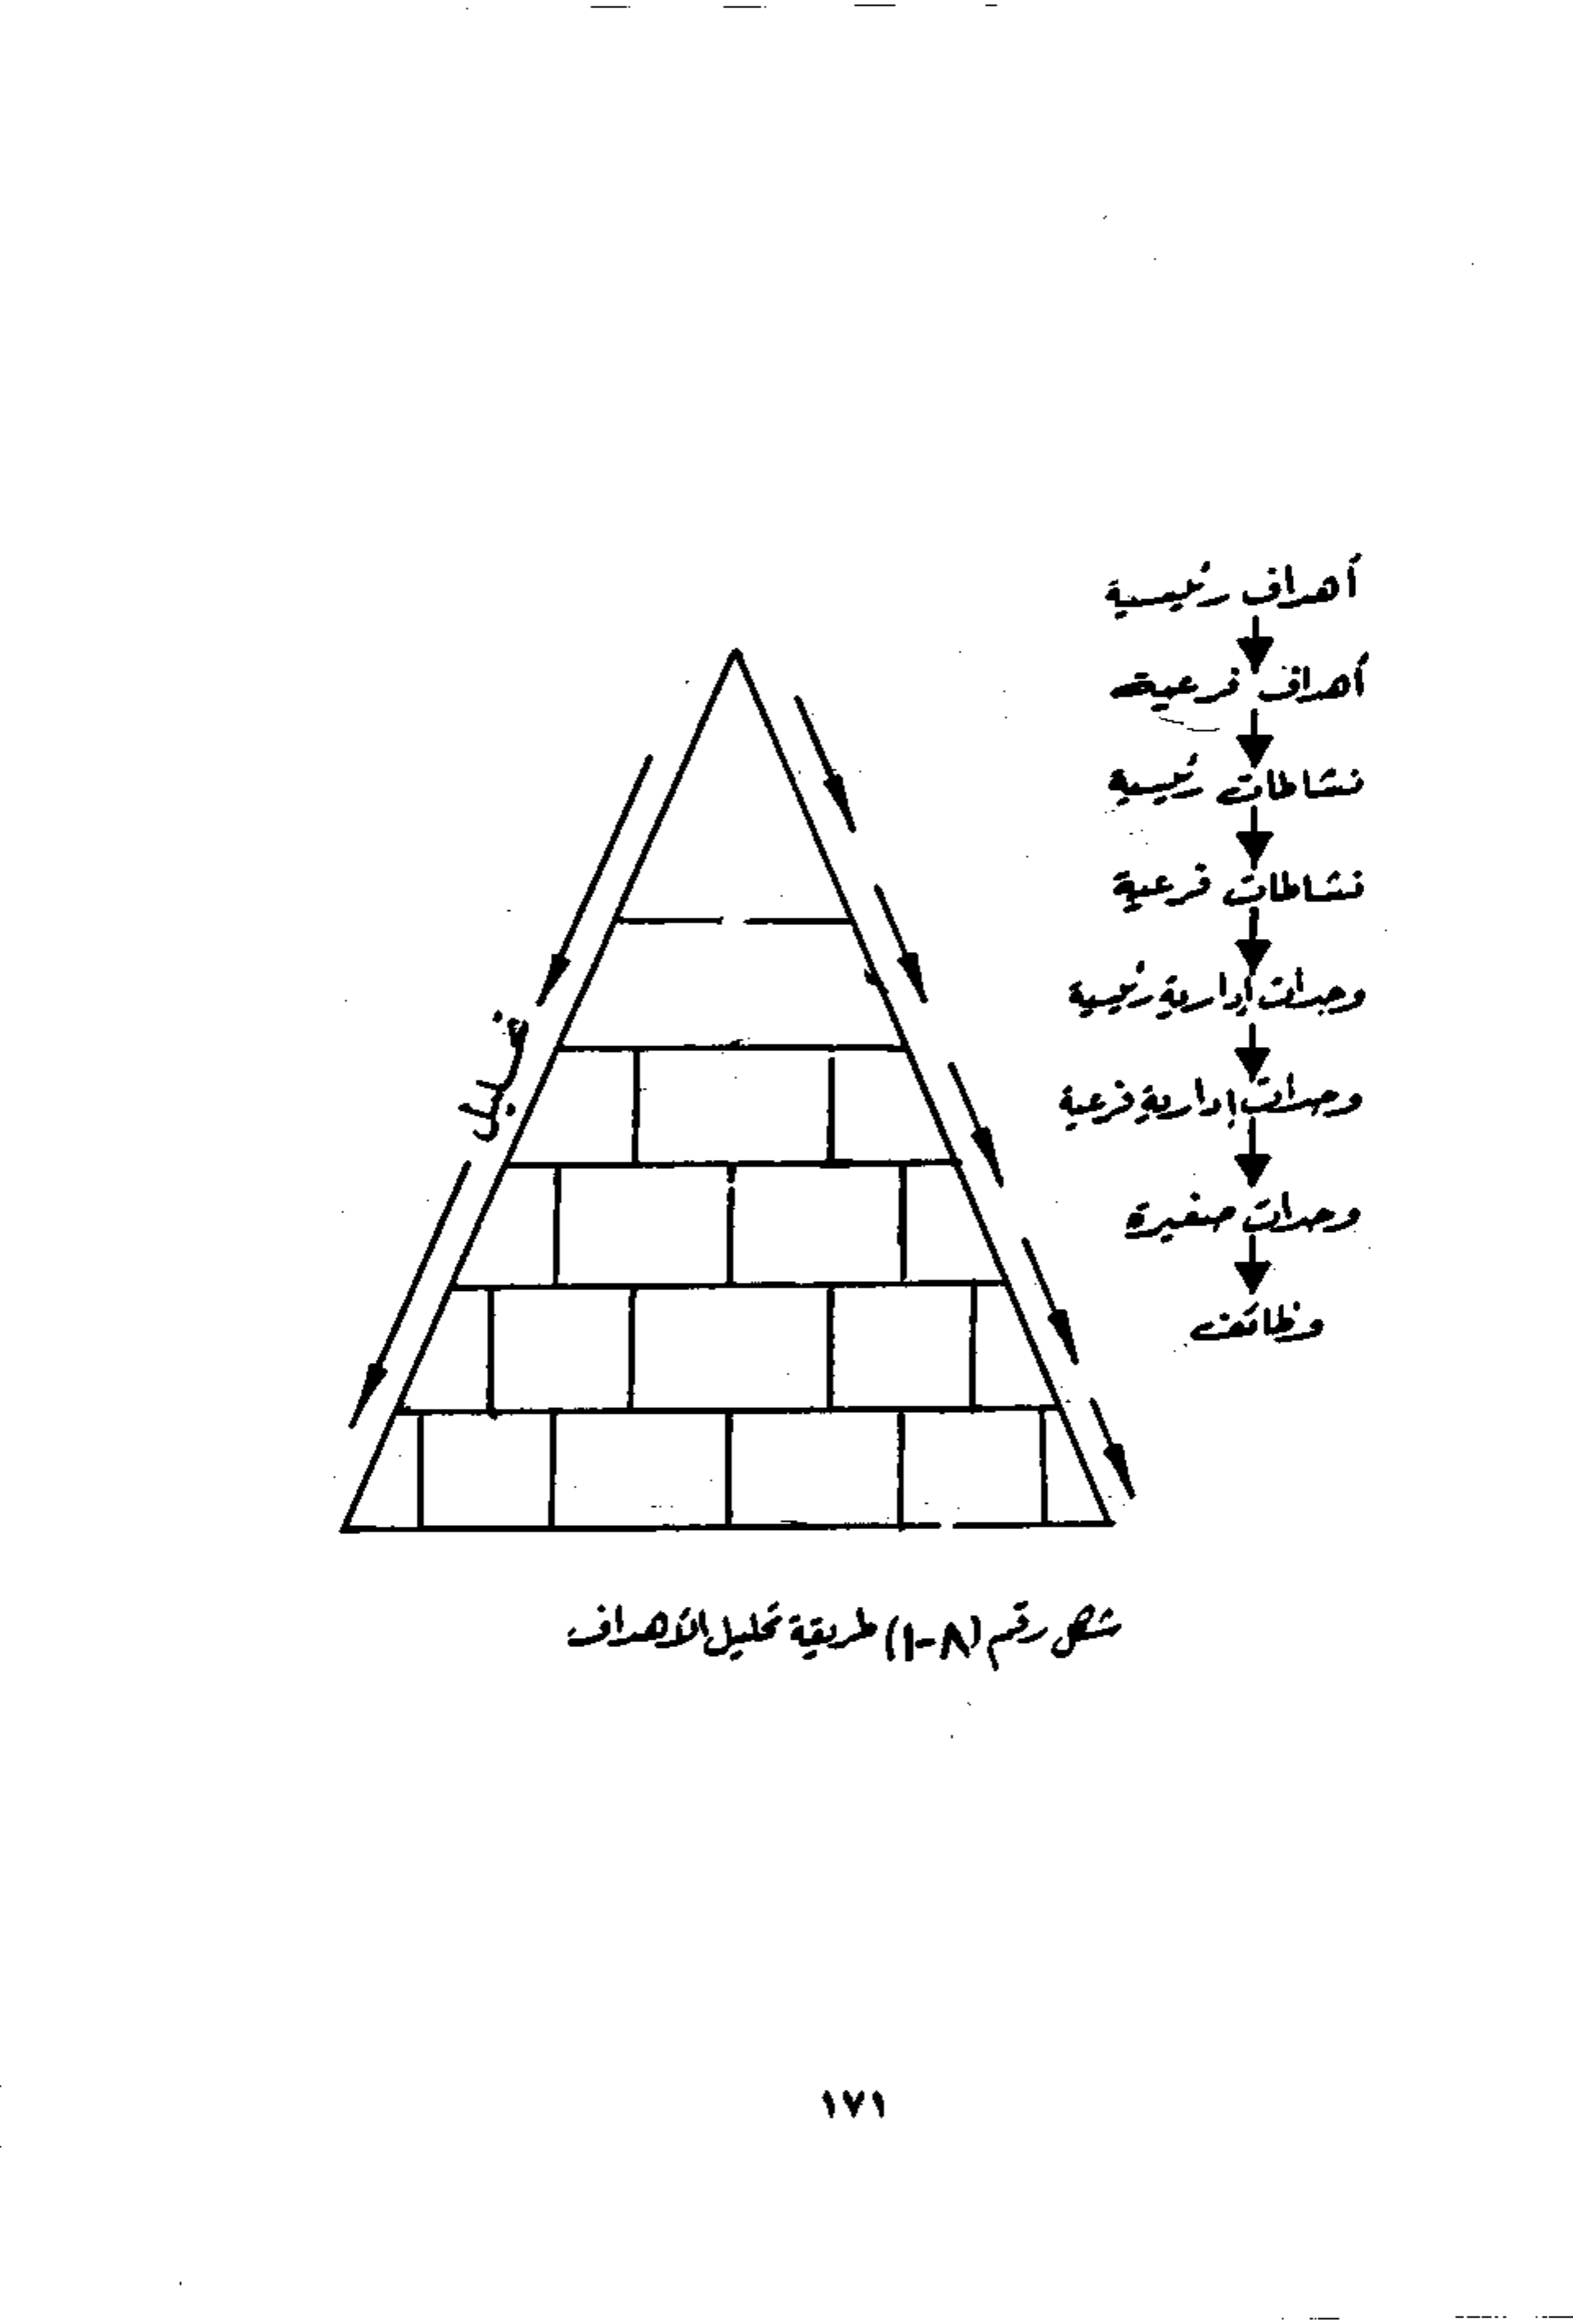 أهداف رئيسية
أهداف فرعية
نشاطات رئيسية
نشاطات فرعية
وحدات إدارية رئيسية
وحدات إدارية فرعية
وحدات صغيرة
وظائف
تحليل
شكل رقم (٨-١) طريقة تحليل الأهداف
١٧١